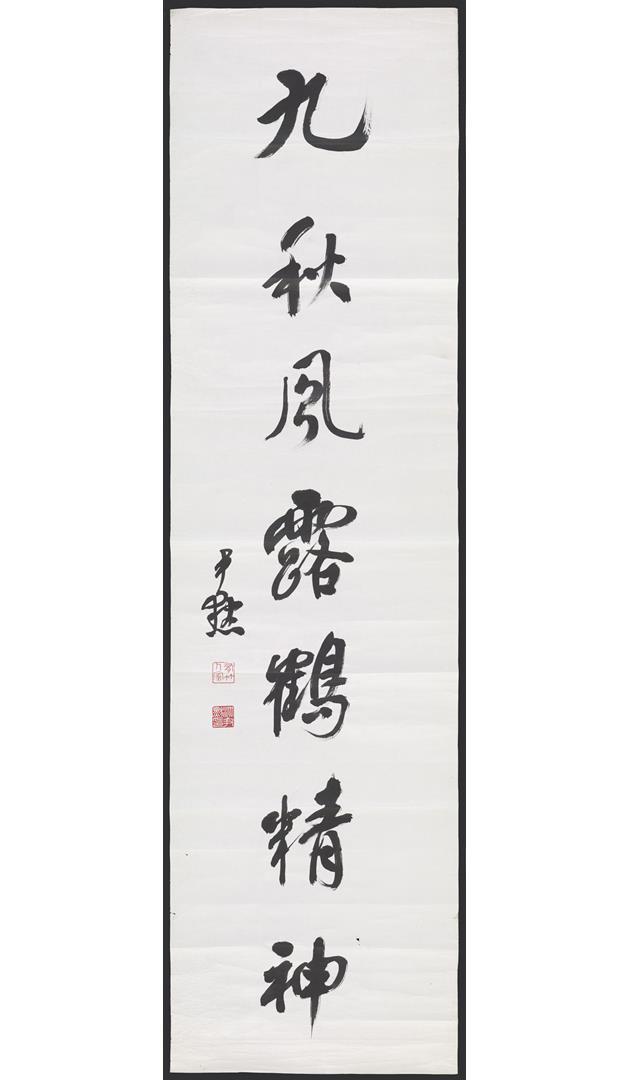 九秋風露鶴精神
尹默